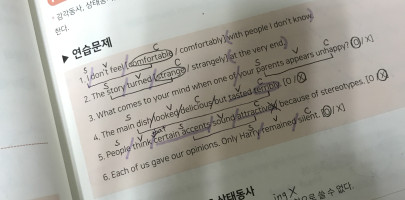 * 감각동사, 상태동
한다.
▶ 연습문제
S V C
1. I don't feel (comfortable / comfortably) with people I don't know.
S V C
2. The story turned (strange / strangely) at the very end.
S V C
3. What comes to your mind when one of your parents appears unhappy? [O / X]
S V C V C
4. The main dish looked delicious but tasted terribly. [O / X]
S V S V C
5. People think certain accents sound attractively because of stereotypes. [O / X]
S V C
6. Each of us gave our opinions. Only Harry remained silent. [O / X]
상태동사
ing X
로 쓸 수 없다.